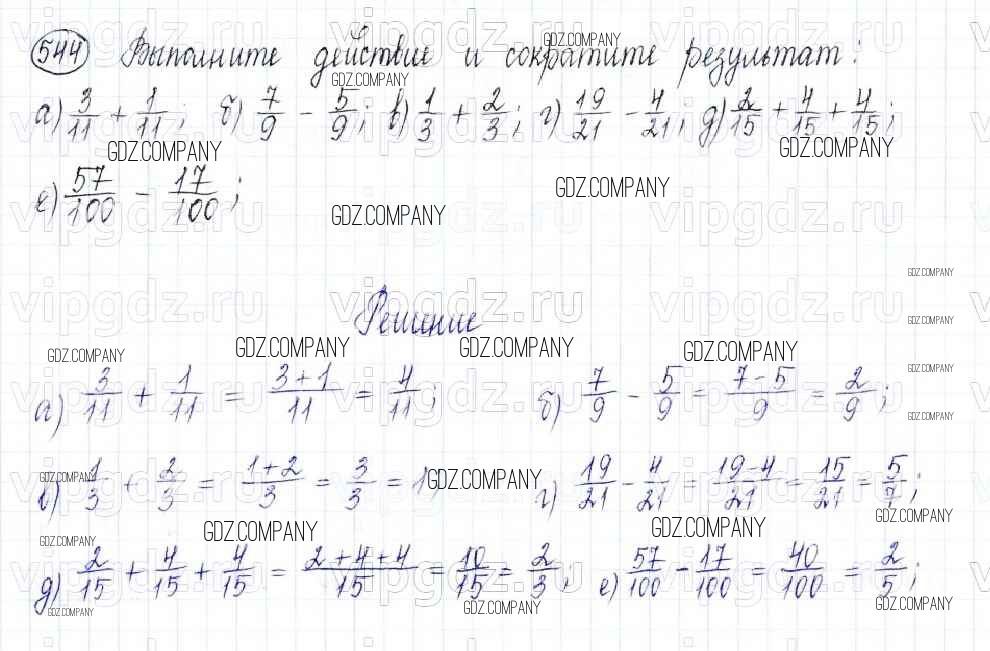 544 Выполните действие и сократите результат:
а) 3/11 + 1/11; б) 7/9 - 5/9; в) 1/3 + 2/3; г) 19/21 - 4/21; д) 2/15 + 4/15 + 4/15;
е) 57/100 - 17/100;
Решение
а) 3/11 + 1/11 = 3+1/11 = 4/11; б) 7/9 - 5/9 = 7-5/9 = 2/9;
в) 1/3 + 2/3 = 1+2/3 = 3/3 = 1; г) 19/21 - 4/21 = 19-4/21 = 15/21 = 5/7;
д) 2/15 + 4/15 + 4/15 = 2+4+4/15 = 10/15 = 2/3; е) 57/100 - 17/100 = 40/100 = 2/5;
GDZ.COMPANY
vipgdz.ru